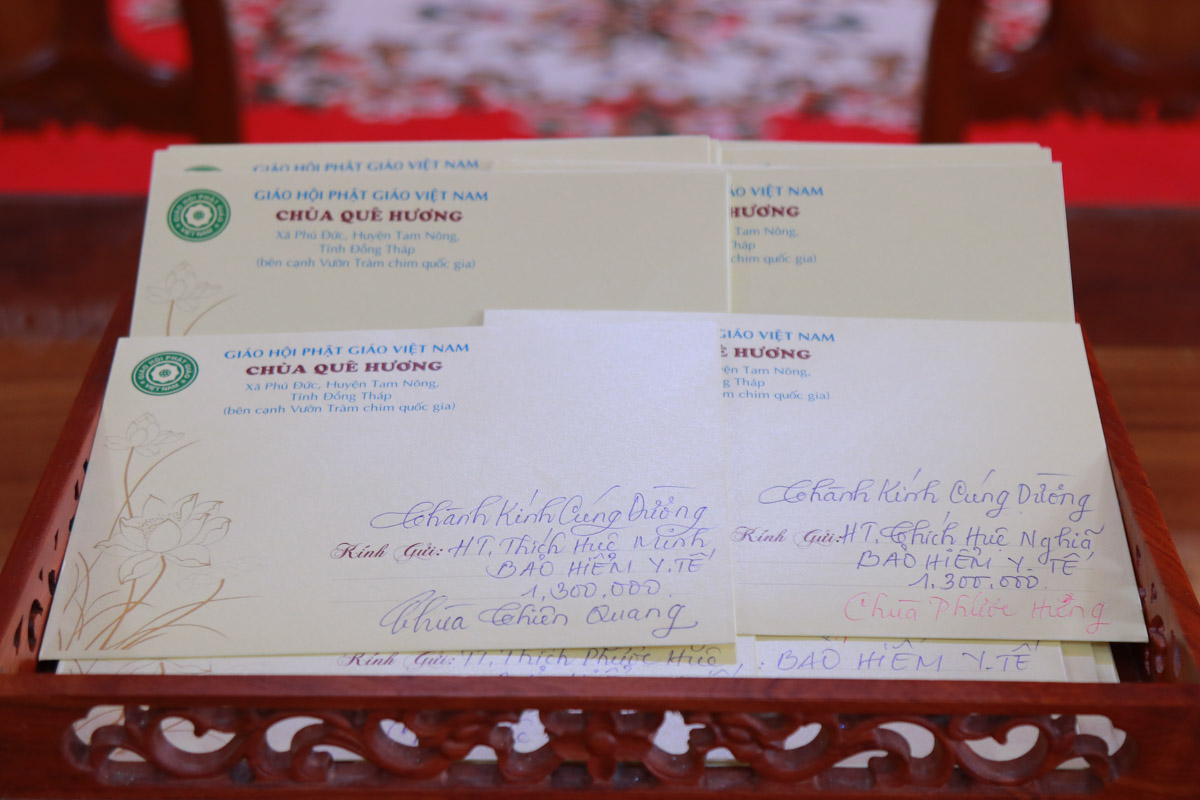 GIÁO HỘI PHẬT GIÁO VIỆT NAM
GIÁO HỘI PHẬT GIÁO VIỆT NAM
GIÁO HỘI PHẬT GIÁO VIỆT NAM
CHÙA QUÊ HƯƠNG
Xã Phú Đức, Huyện Tam Nông,
Tỉnh Đồng Tháp
(bên cạnh Vườn Tràm chim quốc gia)
ÁO VIỆT NAM
HƯƠNG
Tam Nông,
háp
chim quốc gia)
GIÁO HỘI PHẬT GIÁO VIỆT NAM
GIÁO HỘI PHẬT GIÁO VIỆT NAM
CHÙA QUÊ HƯƠNG
Xã Phú Đức, Huyện Tam Nông,
Tỉnh Đồng Tháp
(bên cạnh Vườn Tràm chim quốc gia)
Thành Kính Cúng Dường
Kính Gửi: HT. Thích Huệ Minh
BẢO HIỂM Y. TẾ
1.300.000.
Chùa Thiên Quang
GIÁO VIỆT NAM
Ê HƯƠNG
ện Tam Nông,
g Tháp
m chim quốc gia)
Thành Kính Cúng Dường
Kính Gửi: HT. Thích Huệ Nghĩa
BẢO HIỂM Y. TẾ
1.300.000.
Chùa Phước Hưng
Kính Gửi: TT. Thích Phước Huệ
: BẢO HIỂM Y. TẾ